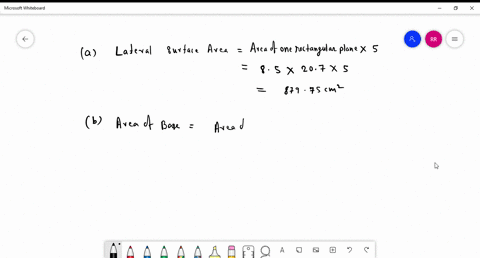 Microsoft Whiteboard
RR
(a) Lateral Surface Area = Area of one rectangular plane × 5
= 8.5 × 20.7 × 5
= 879.75 cm²
(b) Area of Base = Area d
A